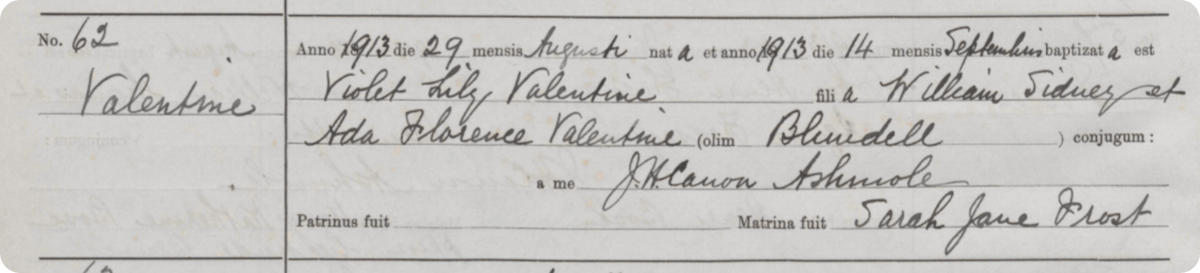 No. 62
Valentine
Anno 1913 die 29 mensis Augusti nat a et anno 1913 die 14 mensis Septembris baptizat a est
Violet Lily Valentine fili a William Sidney et
Ada Florence Valentine (olim Blundell ) conjugum :
a me J.H. Canon Ashmole
Patrinus fuit Matrina fuit Sarah Jane Frost